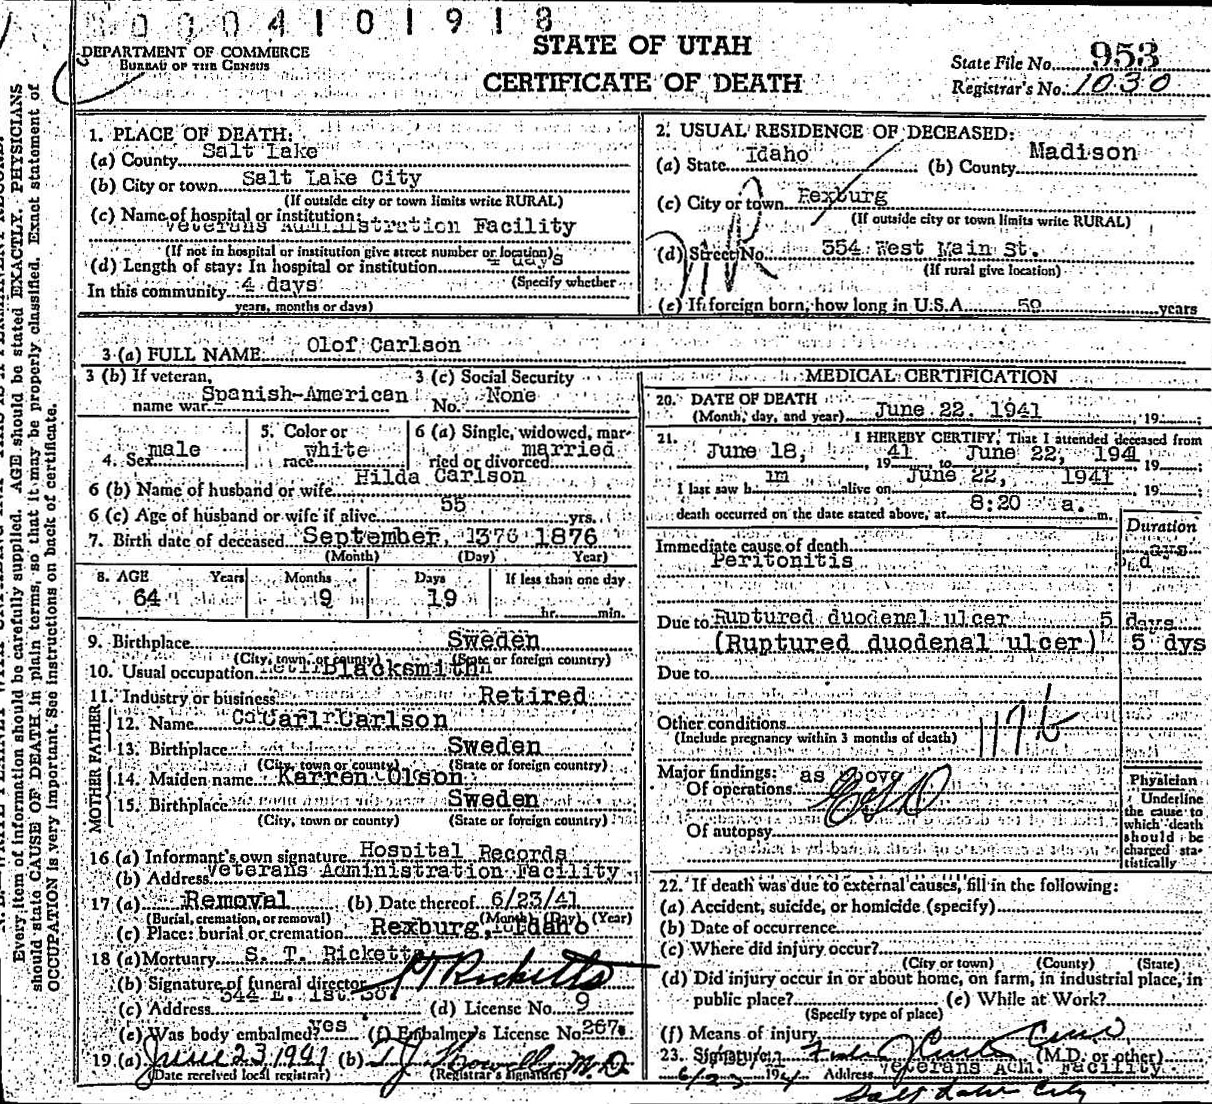 0004101918
DEPARTMENT OF COMMERCE
BUREAU OF THE CENSUS
STATE OF UTAH
CERTIFICATE OF DEATH
State File No. 953
Registrar's No. 1030
1. PLACE OF DEATH:
(a) County Salt Lake
(b) City or town Salt Lake City
(If outside city or town limits write RURAL)
(c) Name of hospital or institution:
Veterans Administration Facility
(If not in hospital or institution give street number or location)
(d) Length of stay: In hospital or institution 4 days
(Specify whether
In this community 4 days
years, months or days)
2. USUAL RESIDENCE OF DECEASED:
(a) State Idaho (b) County Madison
(c) City or town Rexburg
(If outside city or town limits write RURAL)
(d) Street No. 554 West Main St.
(If rural give location)
NR
(e) If foreign born, how long in U.S.A. 59 years
3 (a) FULL NAME Olof Carlson
3 (b) If veteran, name war Spanish-American
3 (c) Social Security No. None
4. Sex male
5. Color or race white
6 (a) Single, widowed, married or divorced married
6 (b) Name of husband or wife Hilda Carlson
6 (c) Age of husband or wife if alive 55 yrs.
7. Birth date of deceased September, 1876 1876
(Month) (Day) Year)
8. AGE Years Months Days If less than one day
64 9 19 hr. min.
9. Birthplace Sweden
(City, town, or county) (State or foreign country)
10. Usual occupation Blacksmith
11. Industry or business Retired
FATHER
12. Name Carl Carlson
13. Birthplace Sweden
(City, town or county) (State or foreign country)
MOTHER
14. Maiden name Karren Olson
15. Birthplace Sweden
(City, town or county) (State or foreign country)
16 (a) Informant's own signature Hospital Records
(b) Address Veterans Administration Facility
17 (a) Removal (b) Date thereof 6/23/41
(Burial, cremation, or removal) (Month) (Day) (Year)
(c) Place: burial or cremation Rexburg, Idaho
18 (a) Mortuary S. T. Ricketts
(b) Signature of funeral director Ricketts
(c) Address 344 E. 1st So. (d) License No. 9
(e) Was body embalmed? yes (f) Embalmer's License No. 267
19 (a) June 23 1941 (b) M.D.
(Date received local registrar) (Registrar's signature)
MEDICAL CERTIFICATION
20. DATE OF DEATH
(Month, day, and year) June 22, 1941 , 19 ;
21. I HEREBY CERTIFY, That I attended deceased from
June 18, 19 41 to June 22, 1941 19 ;
I last saw h im alive on June 22, 1941 , 19 ;
death occurred on the date stated above, at 8:20 a. m.
Duration
Immediate cause of death
Peritonitis
Due to Ruptured duodenal ulcer 5 days
(Ruptured duodenal ulcer) 5 dys
Due to
Other conditions
(Include pregnancy within 3 months of death)
117b
Major findings: as above
Of operations
Of autopsy
Physician
Underline the cause to which death should be charged statistically
22. If death was due to external causes, fill in the following:
(a) Accident, suicide, or homicide (specify)
(b) Date of occurrence
(c) Where did injury occur?
(City or town) (County) (State)
(d) Did injury occur in or about home, on farm, in industrial place, in
public place? (e) While at Work?
(Specify type of place)
(f) Means of injury
23. Signature (M.D. or other)
6/23 194 Address Veterans Adm. Facility
Salt Lake City
Every item of information should be carefully supplied. AGE should be stated EXACTLY. PHYSICIANS
should state CAUSE OF DEATH in plain terms, so that it may be properly classified. Exact statement of
OCCUPATION is very important. See instructions on back of certificate.